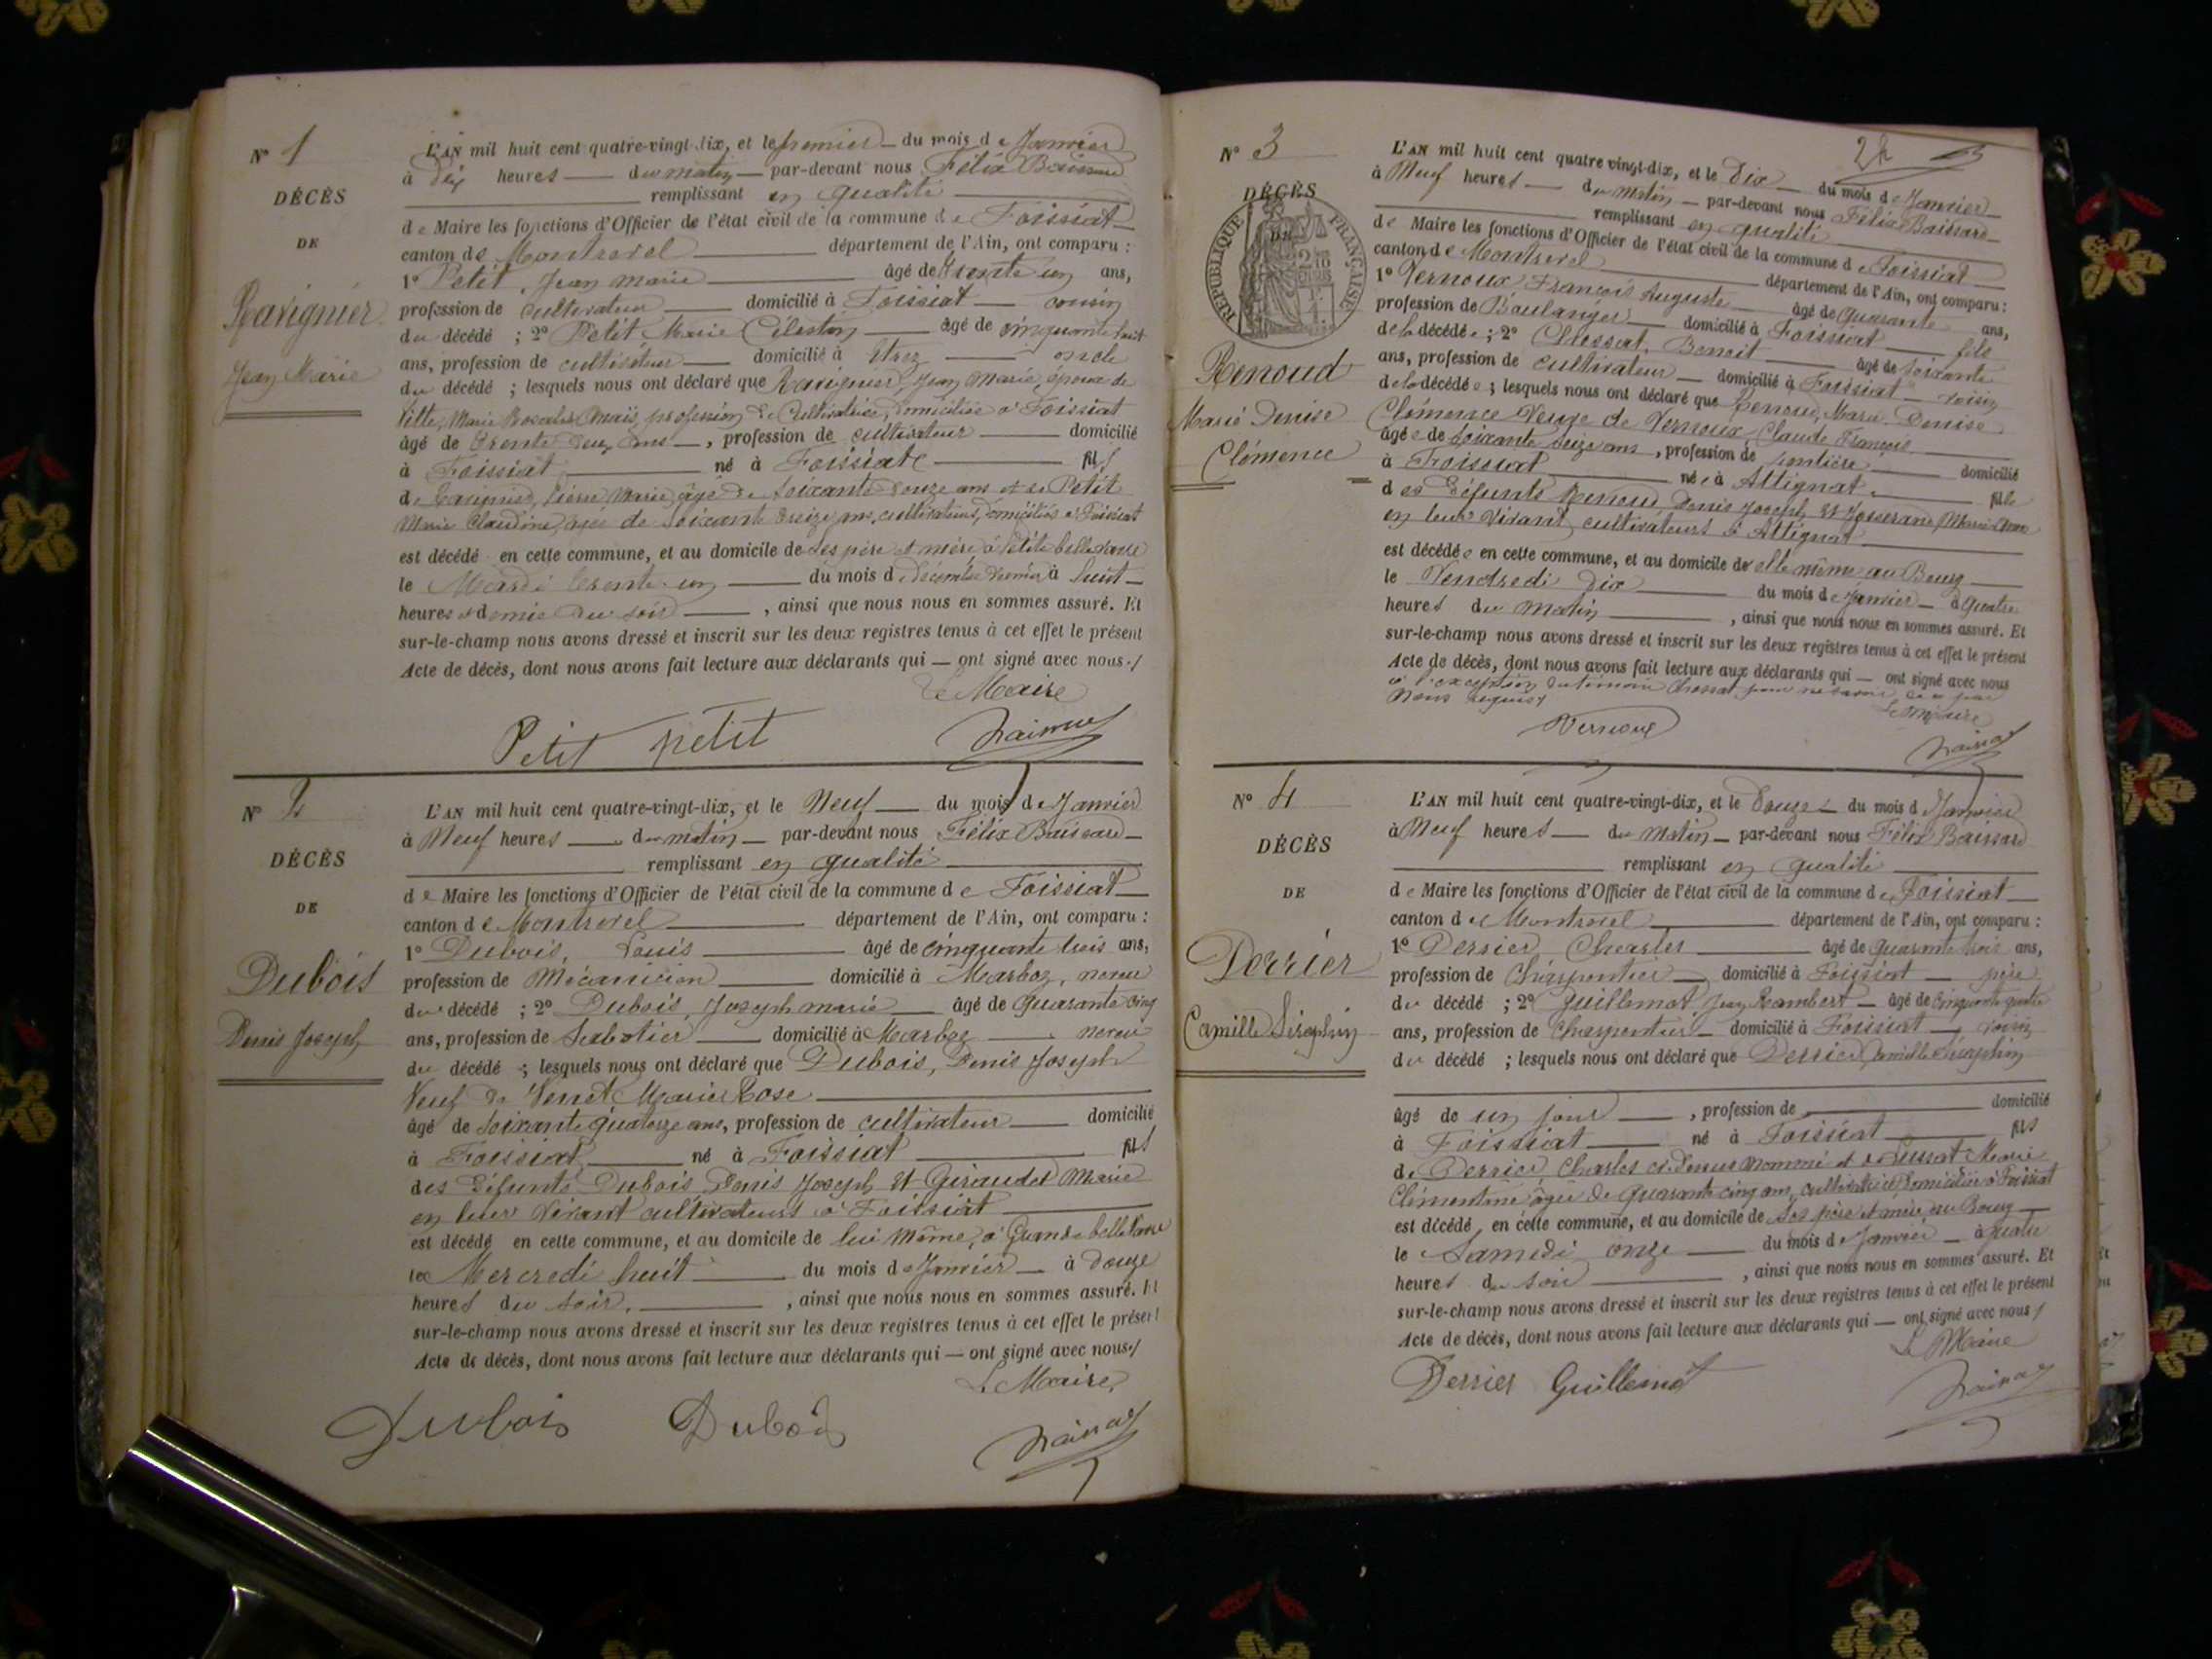 N° 1
DÉCÈS
DE
Ravignier
Jean Marie
L'AN mil huit cent quatre-vingt-dix, et le premier du mois de Janvier
à dix heures du matin par-devant nous Félix Baissard
remplissant en qualité
de Maire les fonctions d'Officier de l'état civil de la commune de Foissiat
canton de Montrevel département de l'Ain, ont comparu :
1° Petit, Jean Marie âgé de trente un ans,
profession de cultivateur domicilié à Foissiat cousin
du décédé ; 2° Petit Marie Célestin âgé de cinquante huit
ans, profession de cultivateur domicilié à Etrez oncle
du décédé ; lesquels nous ont déclaré que Ravignier, Jean Marie, époux de
Marie profession de Cultivatrice, domiciliée à Foissiat
âgé de trente deux ans, profession de cultivateur domicilié
à Foissiat né à Foissiat fils
de Ravignier, Pierre Marie, âgé de soixante douze ans et de Petit
Marie Claudine, âgée de soixante treize ans, cultivateurs, domiciliés à Foissiat
est décédé en cette commune, et au domicile de ses père et mère, à Petite
le Mardi trente-un du mois de Décembre dernier à huit
heures et demie du soir, ainsi que nous nous en sommes assuré. Et
sur-le-champ nous avons dressé et inscrit sur les deux registres tenus à cet effet le présent
Acte de décès, dont nous avons fait lecture aux déclarants qui — ont signé avec nous./
Le Maire
Petit petit
N° 2
DÉCÈS
DE
Dubois
Denis Joseph
L'AN mil huit cent quatre-vingt-dix, et le Neuf du mois de Janvier
à Neuf heures du matin par-devant nous Félix Baissard
remplissant en qualité
de Maire les fonctions d'Officier de l'état civil de la commune de Foissiat
canton de Montrevel département de l'Ain, ont comparu :
1° Dubois, Louis âgé de cinquante trois ans,
profession de Mécanicien domicilié à Marboz, neveu
du décédé ; 2° Dubois, Joseph marie âgé de quarante cinq
ans, profession de Sabotier domicilié à Marboz neveu
du décédé ; lesquels nous ont déclaré que Dubois, Denis Joseph
Veuf de Venet Marie Rose
âgé de soixante quatorze ans, profession de cultivateur domicilié
à Foissiat né à Foissiat fils
des défunts Dubois Denis Joseph et Giraudet Marie
en leur vivant cultivateurs à Foissiat
est décédé en cette commune, et au domicile de lui même, à Grande
le Mercredi huit du mois de Janvier à douze
heures du soir, ainsi que nous nous en sommes assuré. Et
sur-le-champ nous avons dressé et inscrit sur les deux registres tenus à cet effet le présent
Acte de décès, dont nous avons fait lecture aux déclarants qui — ont signé avec nous./
Le Maire,
Dubois Dubois
N° 3
DÉCÈS
DE
RÉPUBLIQUE FRANÇAISE
Renoud
Marie Denise
Clémence
L'AN mil huit cent quatre vingt-dix, et le Dix du mois de Janvier
à Neuf heures du matin par-devant nous Félix Baissard
remplissant en qualité
de Maire les fonctions d'Officier de l'état civil de la commune de Foissiat
canton de Montrevel département de l'Ain, ont comparu :
1° Vernoux François Auguste âgé de quarante ans,
profession de Boulanger domicilié à Foissiat fils
de la décédée ; 2° Chossat, Benoit âgé de soixante
ans, profession de cultivateur domicilié à Foissiat voisin
de la décédée ; lesquels nous ont déclaré que Renoud, Marie Denise
Clémence Veuve de Vernoux, Claude François
âgée de soixante ans, profession de rentière domicilié
à Foissiat née à Attignat fille
des défunts Renoud Denis Joseph et Josserand,
en leur vivant cultivateurs à Attignat
est décédée en cette commune, et au domicile de elle même au Bourg
le Vendredi dix du mois de Janvier à quatre
heures du matin, ainsi que nous nous en sommes assuré. Et
sur-le-champ nous avons dressé et inscrit sur les deux registres tenus à cet effet le présent
Acte de décès, dont nous avons fait lecture aux déclarants qui — ont signé avec nous
à l'exception du témoin Chossat pour ne savoir de ce par
nous requis
Le maire
Vernoux
N° 4
DÉCÈS
DE
Derrier
Camille Séraphin
L'AN mil huit cent quatre-vingt-dix, et le Douze du mois de Janvier
à Neuf heures du matin par-devant nous Félix Baissard
remplissant en qualité
de Maire les fonctions d'Officier de l'état civil de la commune de Foissiat
canton de Montrevel département de l'Ain, ont comparu :
1° Derrier Charles âgé de quarante trois ans,
profession de Charpentier domicilié à Foissiat père
du décédé ; 2° Guillemot, Jean Rambert âgé de cinquante quatre
ans, profession de Charpentier domicilié à Foissiat voisin
du décédé ; lesquels nous ont déclaré que Derrier Camille Séraphin
âgé de un jour, profession de domicilié
à Foissiat né à Foissiat fils
de Derrier Charles ci-dessus nommé et de Marie
Clémentine âgée de quarante cinq ans, cultivatrice domiciliée à Foissiat
est décédé en cette commune, et au domicile de ses père et mère au Bourg
le Samedi onze du mois de Janvier à quatre
heures du soir, ainsi que nous nous en sommes assuré. Et
sur-le-champ nous avons dressé et inscrit sur les deux registres tenus à cet effet le présent
Acte de décès, dont nous avons fait lecture aux déclarants qui — ont signé avec nous /
Le Maire
Derrier Guillemot